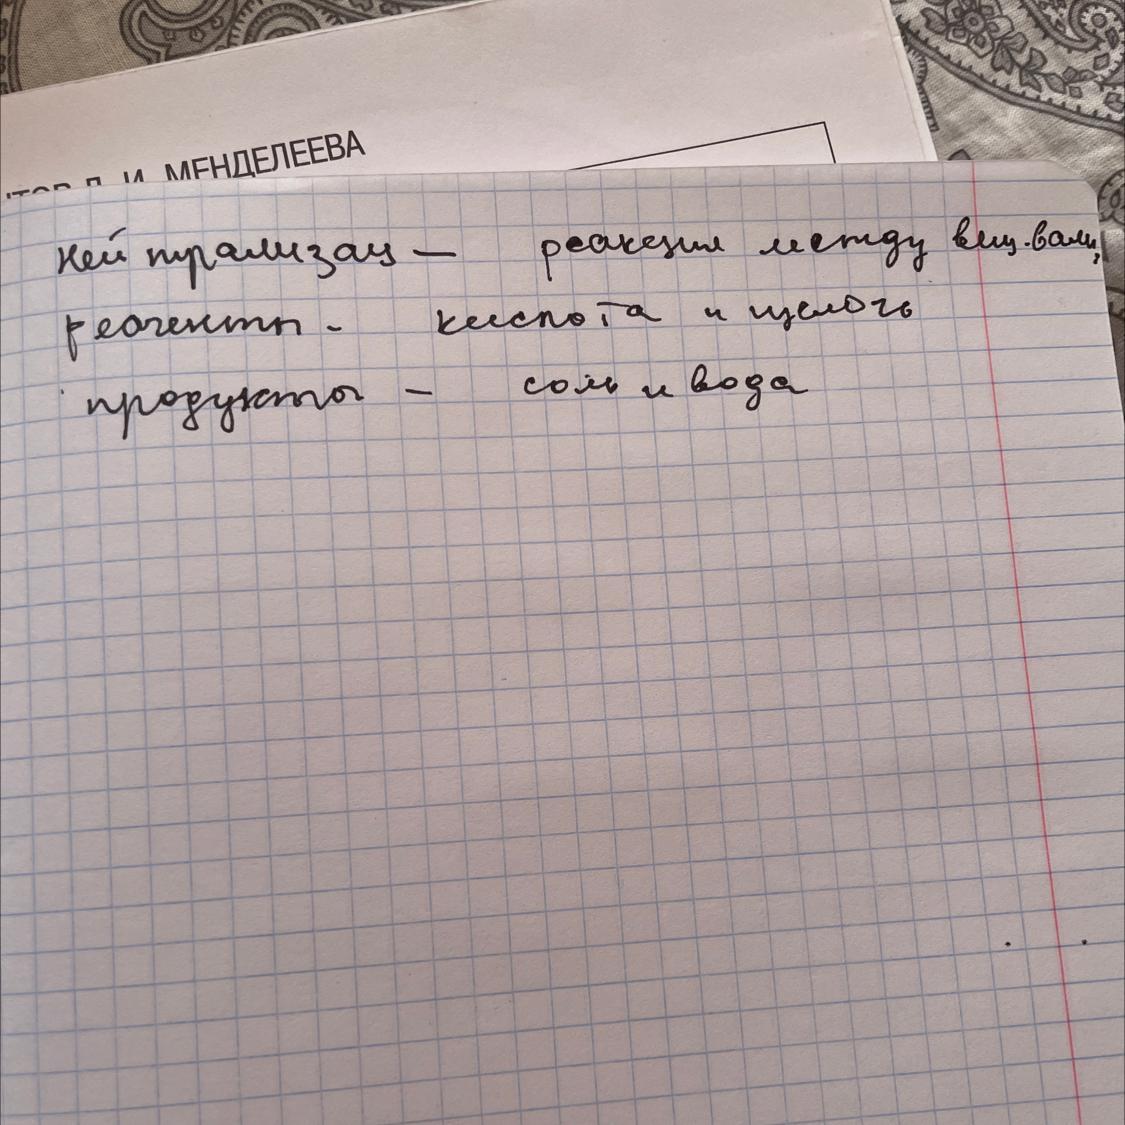 Д. И. МЕНДЕЛЕЕВА
Нейтрализац — реакция между вещ-вами,
реагенты - кислота и щелочь
продукты - соль и вода